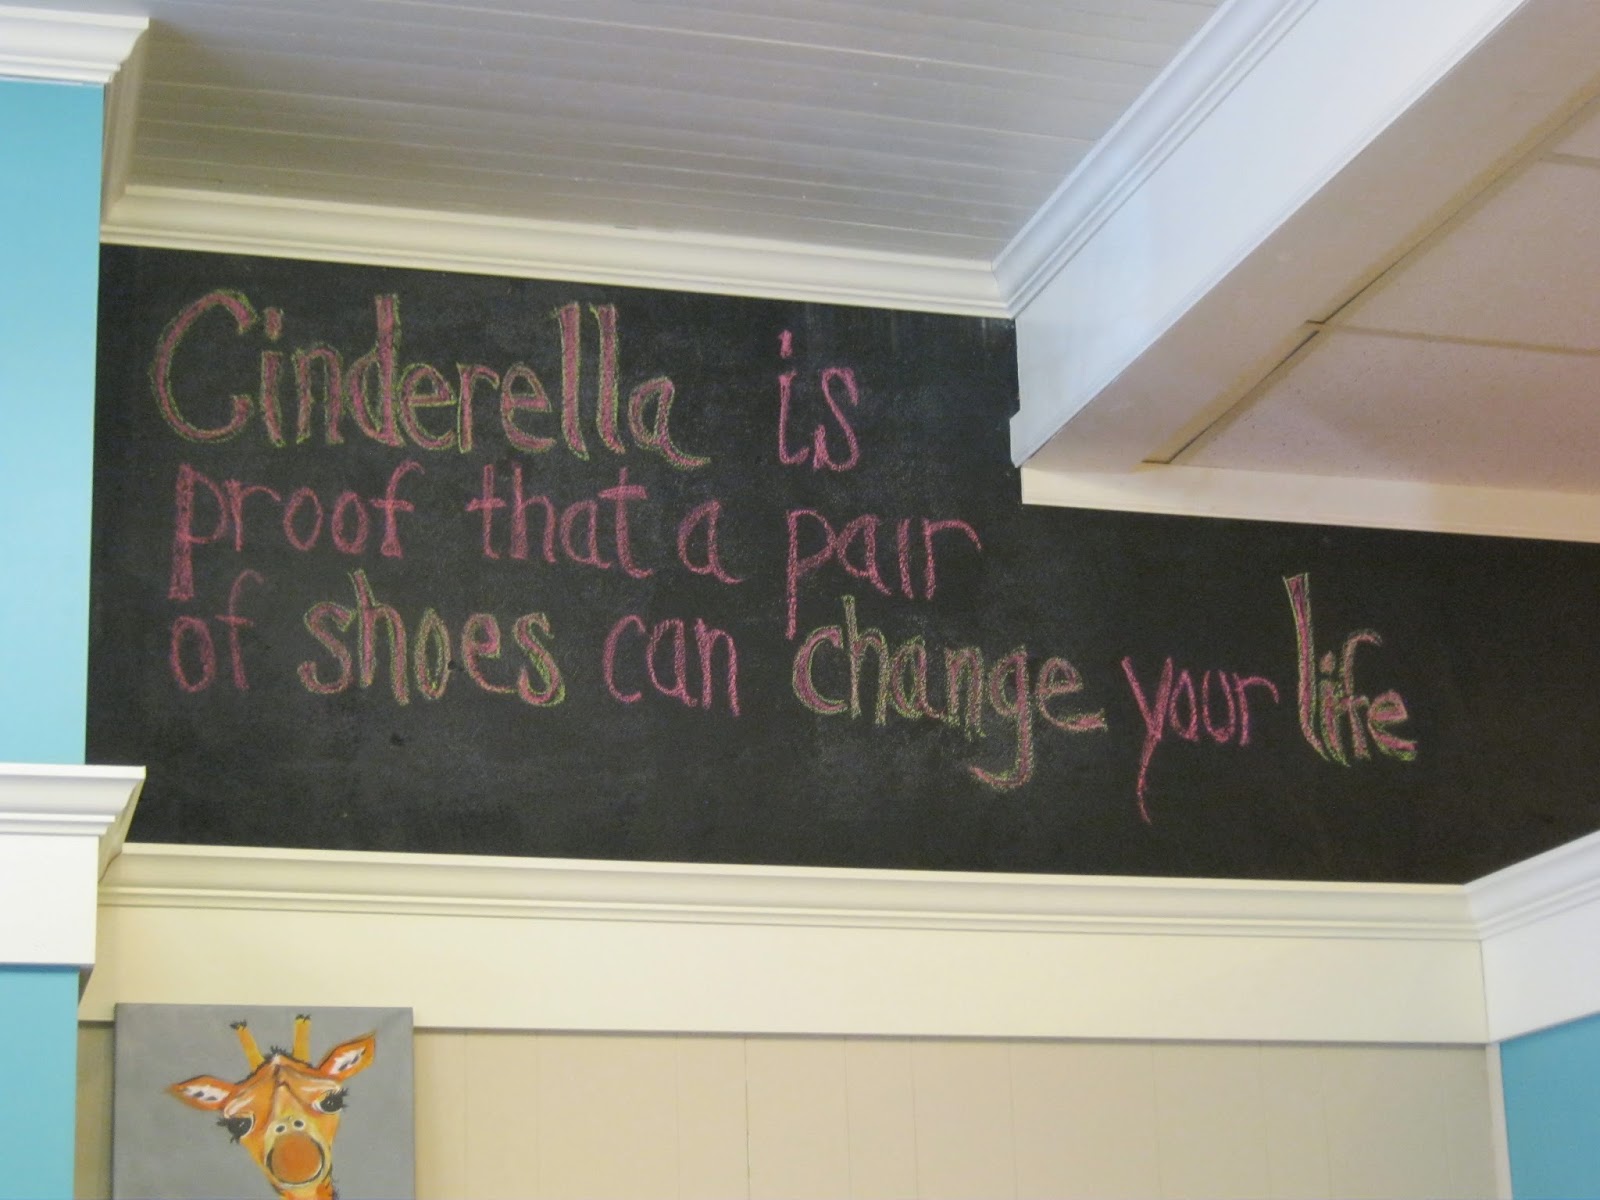 Cinderella is
proof that a pair
of shoes can change your life